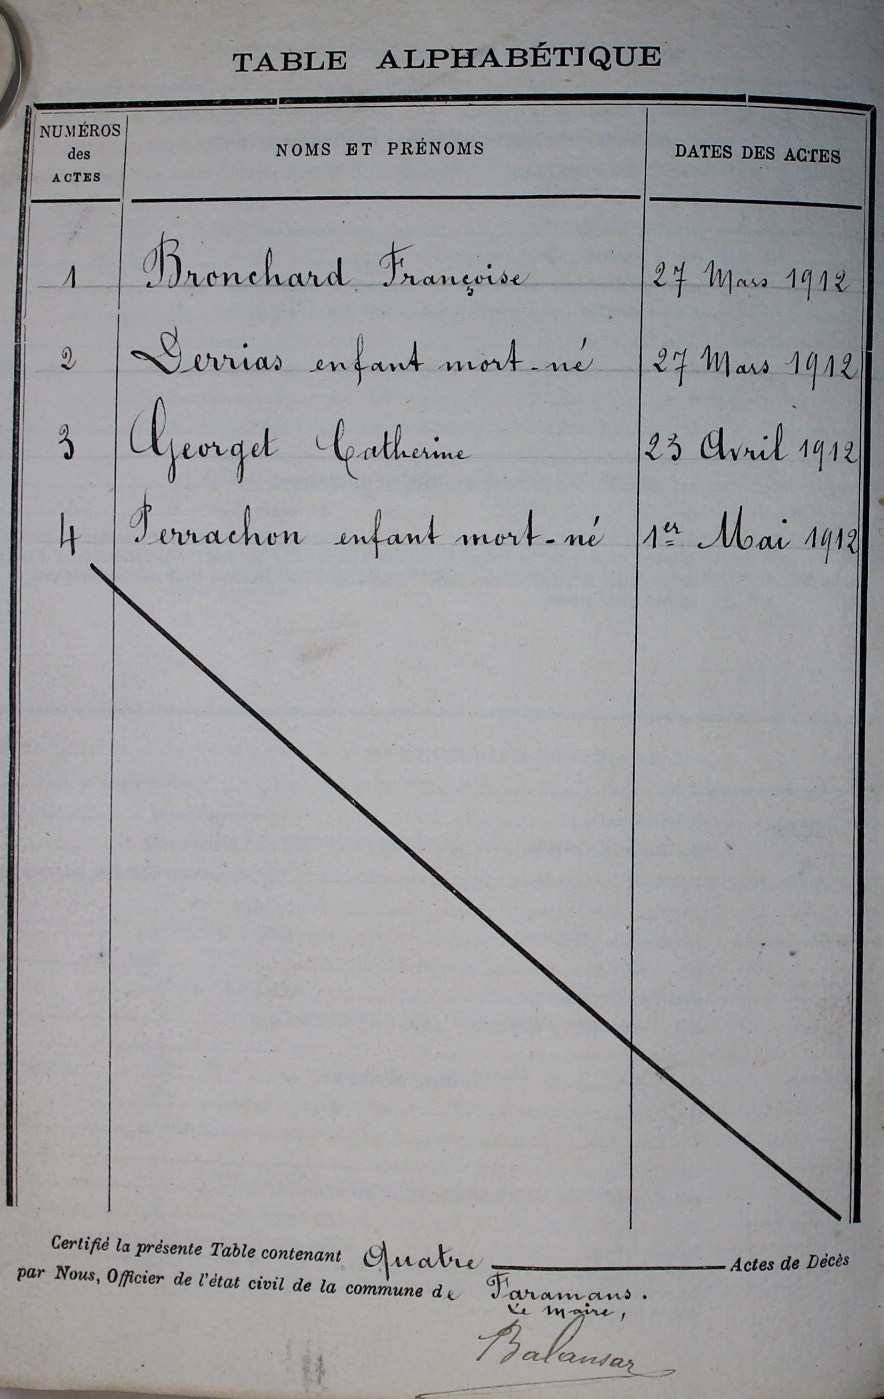 TABLE ALPHABÉTIQUE
NUMÉROS des ACTES NOMS ET PRÉNOMS DATES DES ACTES
1 Bronchard Françoise 27 Mars 1912
2 Derrias enfant mort-né 27 Mars 1912
3 Georget Catherine 23 Avril 1912
4 Perrachon enfant mort-né 1er Mai 1912
Certifié la présente Table contenant Quatre Actes de Décès
par Nous, Officier de l'état civil de la commune de Faramans.
Le Maire,